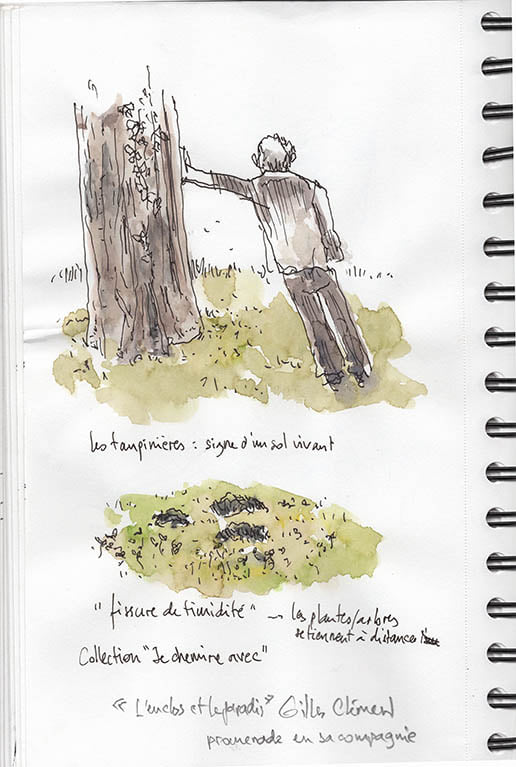 les taupinières : signe d'un sol vivant
"fissure de timidité" ~ les plantes/arbres
se tiennent à distance
Collection "Je chemine avec"
« L'enclos et le paradis » Gilles Clément
promenade en sa compagnie